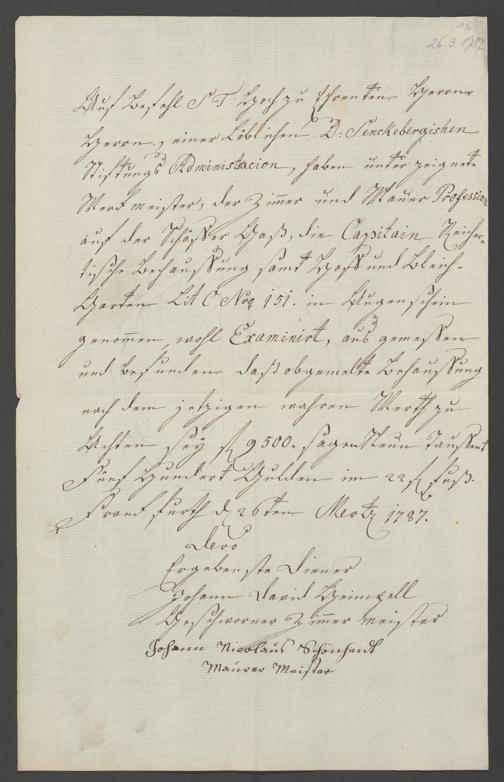 15
26.3.1787
Auf Befehl S T Hoch zu Ehrenten Herrn
Herrn, einer Löblichen D: Senckebergishen
Stiftungs Administracion, haben unter zeignete
Werckmeister, der Zimmer und Maurer Profession
auf der Schässer Gaß, die Capitain Reicher-
tische Behaussung samt Hoff und Bleich-
Garten Lit C Nro 151. in Augenschein
genommen, wohl Examinirt, aus gemessen
und befunden daß obgemelte Behaussung
nach dem jetzigen wahren Werth zu
Achten sey fl 9500. sagen Neun Taussent
Fünf Hundert Gulden im 22 fl Fuß.
Franckfurth d 26ten Mertz 1787.
Dero
Ergebenste Diener
Johann David
Geschworner Zimmer meister
Johann Nicolaus Schönheit
Maurer Meister